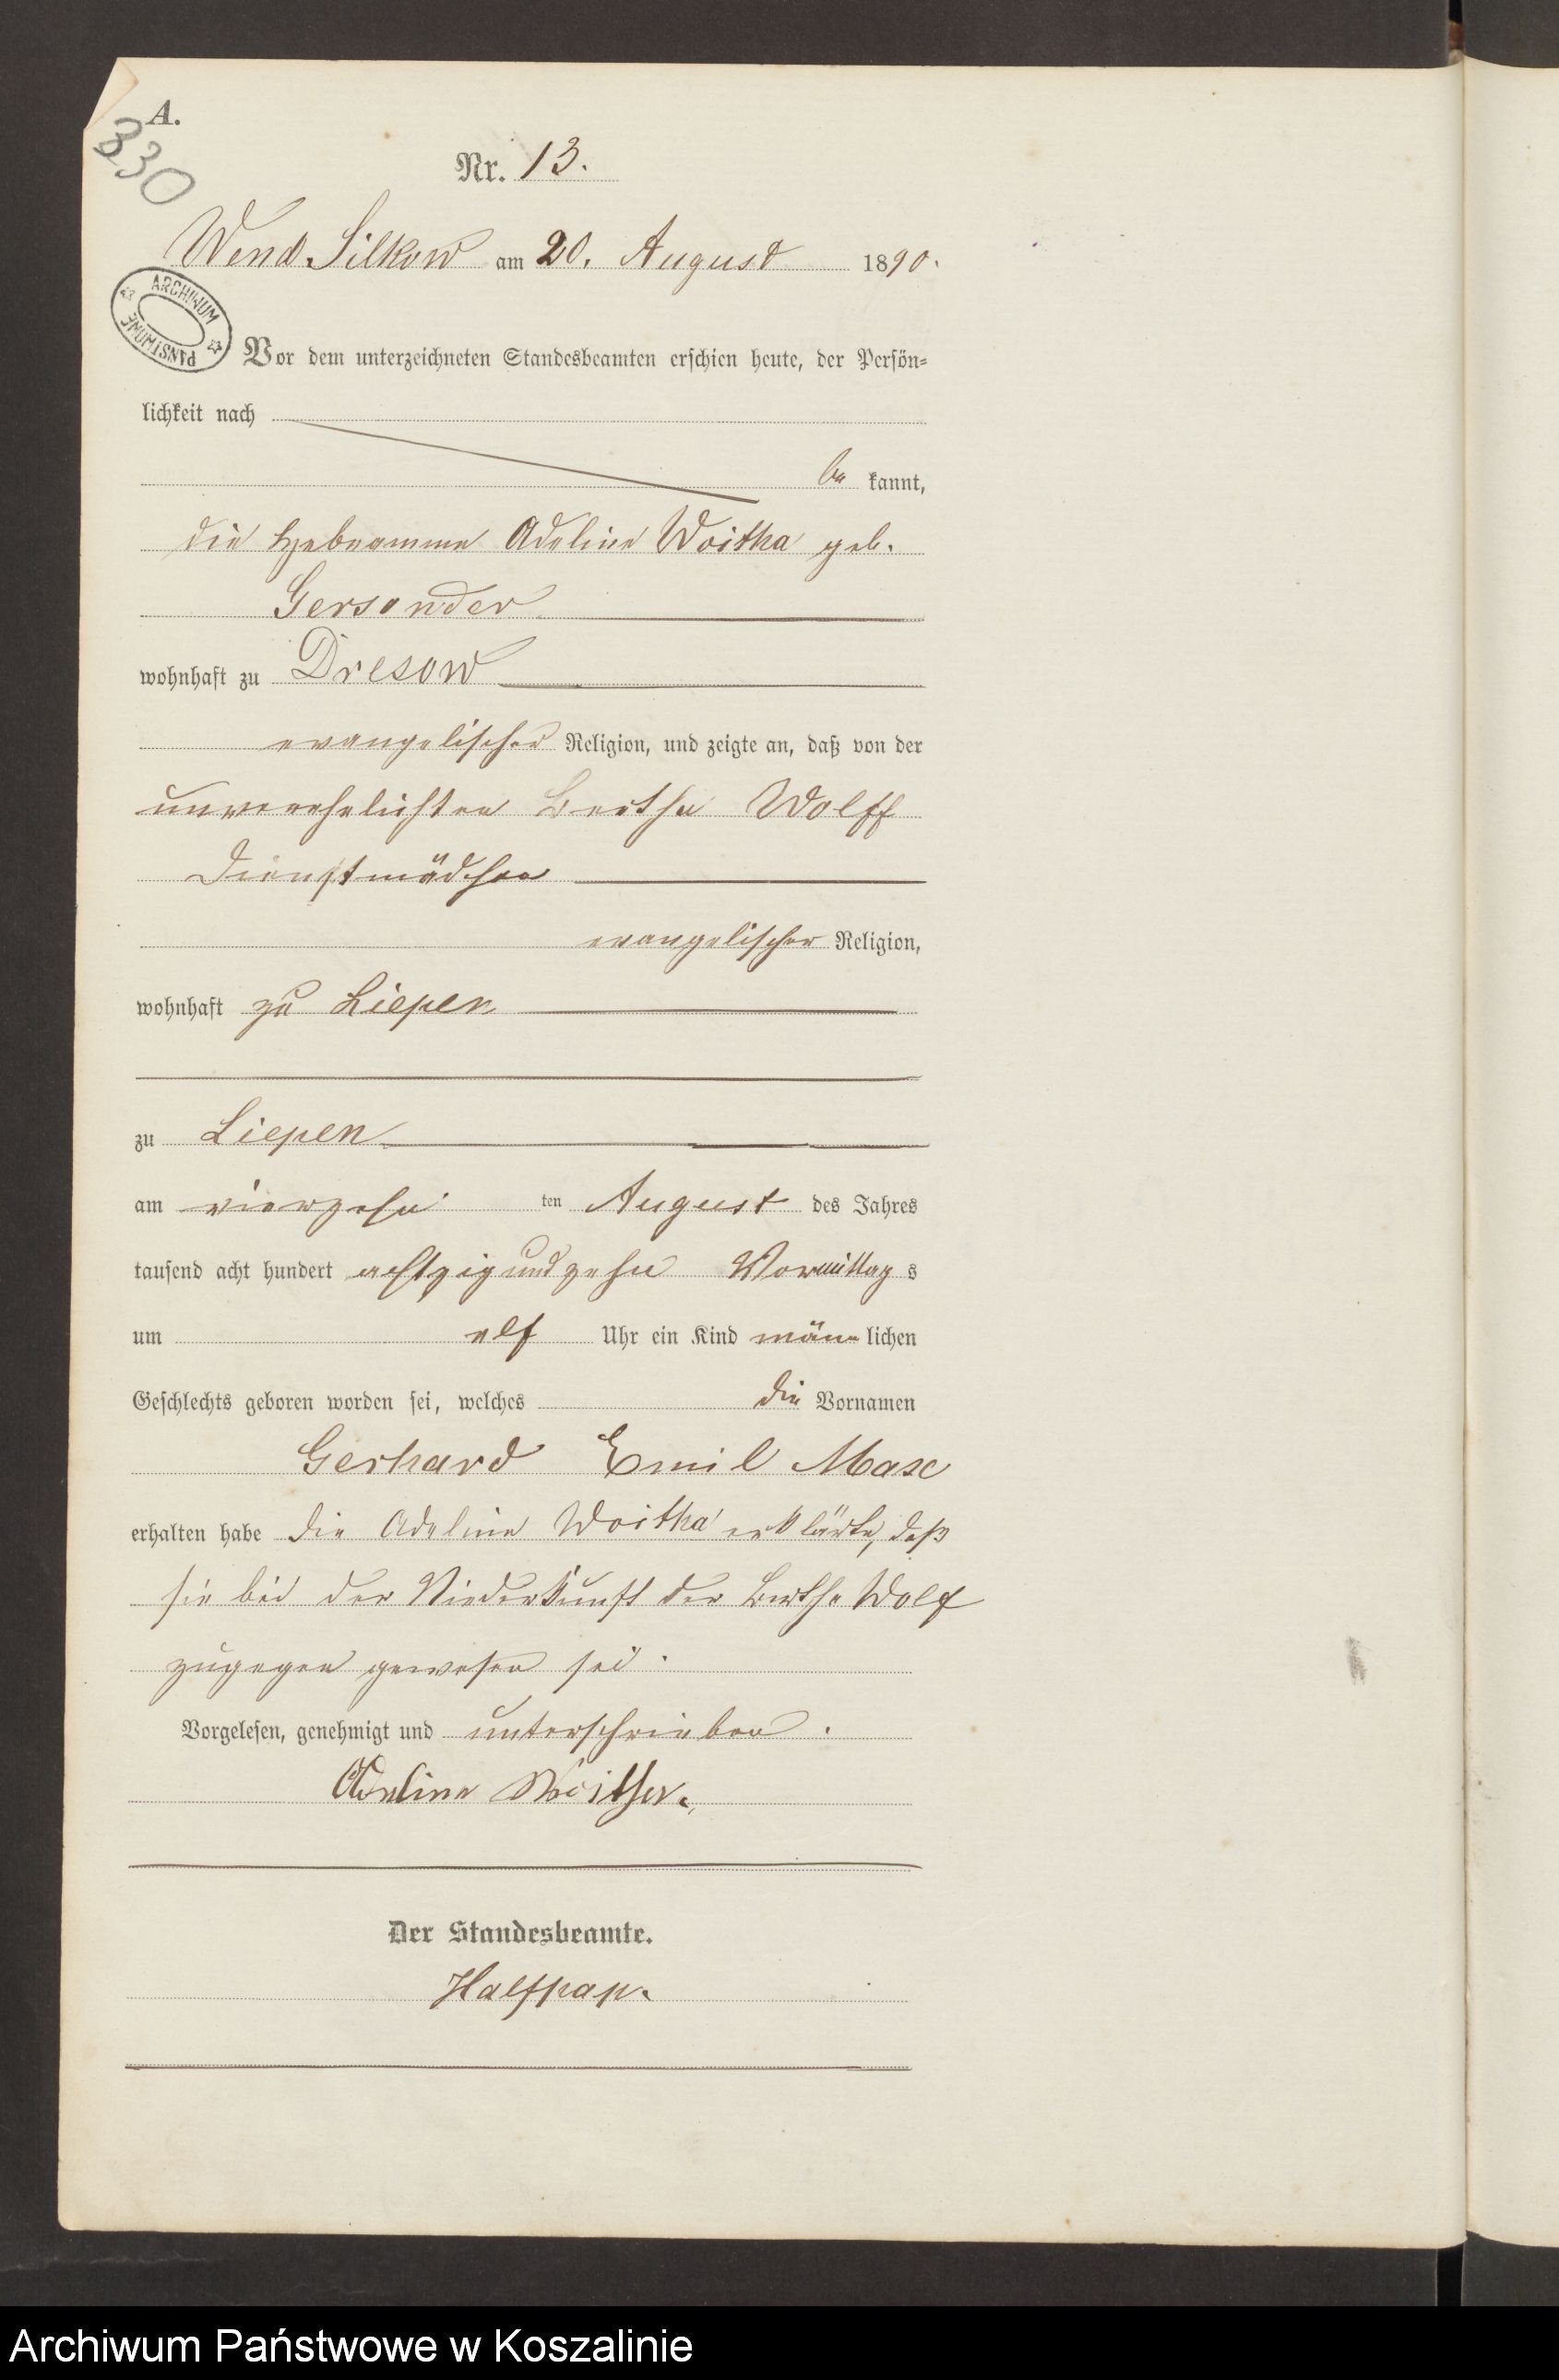 A.
330
Nr. 13.
Wend. Silkow am 20. August 1890.
ARCHIWUM PAŃSTWOWE
Vor dem unterzeichneten Standesbeamten erschien heute, der Persön-
lichkeit nach
be kannt,
die Hebeamme Adeline Woitha geb.
Gersonder
wohnhaft zu Dresow
evangelischer Religion, und zeigte an, daß von der
unverehelichten Bertha Wolff
Dienstmädchen
evangelischer Religion,
wohnhaft zu Liepen
zu Liepen
am vierzehn ten August des Jahres
tausend acht hundert achtzig und zehn Vormittag s
um elf Uhr ein Kind männlichen
Geschlechts geboren worden sei, welches die Vornamen
Gerhard Emil Max
erhalten habe die Adeline Woitha erklärte, daß
sie bei der Niederkunft der Bertha Wolf
zugegen gewesen sei.
Vorgelesen, genehmigt und unterschrieben.
Adeline Woitha.
Der Standesbeamte.
Halfpap.
Archiwum Państwowe w Koszalinie